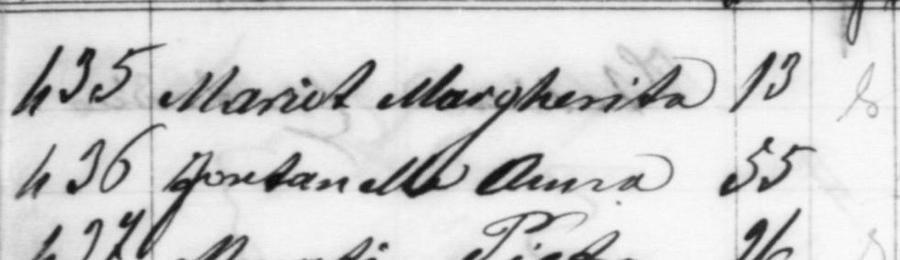 435 Mariot Margherita 13
436 Fontanella Anna 55
437